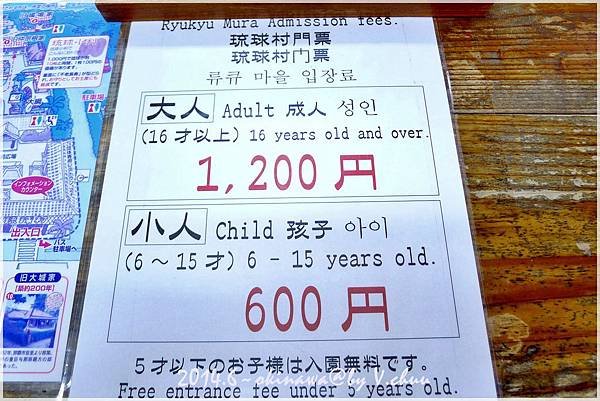 Ryukyu Mura Admission fees.
琉球村門票
琉球村门票
류큐 마을 입장료
大人 Adult 成人 성인
(16才以上) 16 years old and over.
1,200円
小人 Child 孩子 아이
(6～15才) 6 - 15 years old.
600円
5才以下のお子様は入園無料です。
Free entrance fee under 5 years old.
2014.6~okinawa@by V.chuu
駐車場
インフォメーション
カウンター
出入口
バス
駐車場へ
旧大城家
【築約200年】